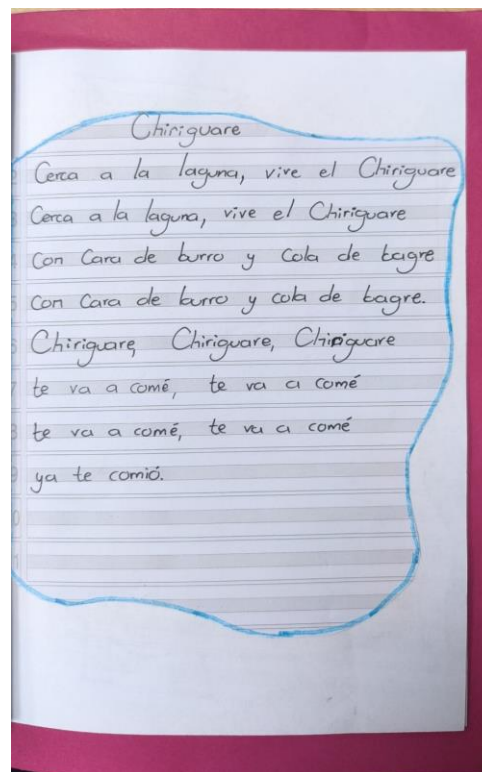 Chiriguare
Cerca a la laguna, vive el Chiriguare
Cerca a la laguna, vive el Chiriguare
Con Cara de burro y Cola de bagre
Con Cara de burro y cola de bagre.
Chiriguare, Chiriguare, Chiriguare
te va a comé, te va a comé
te va a comé, te va a comé
ya te comió.